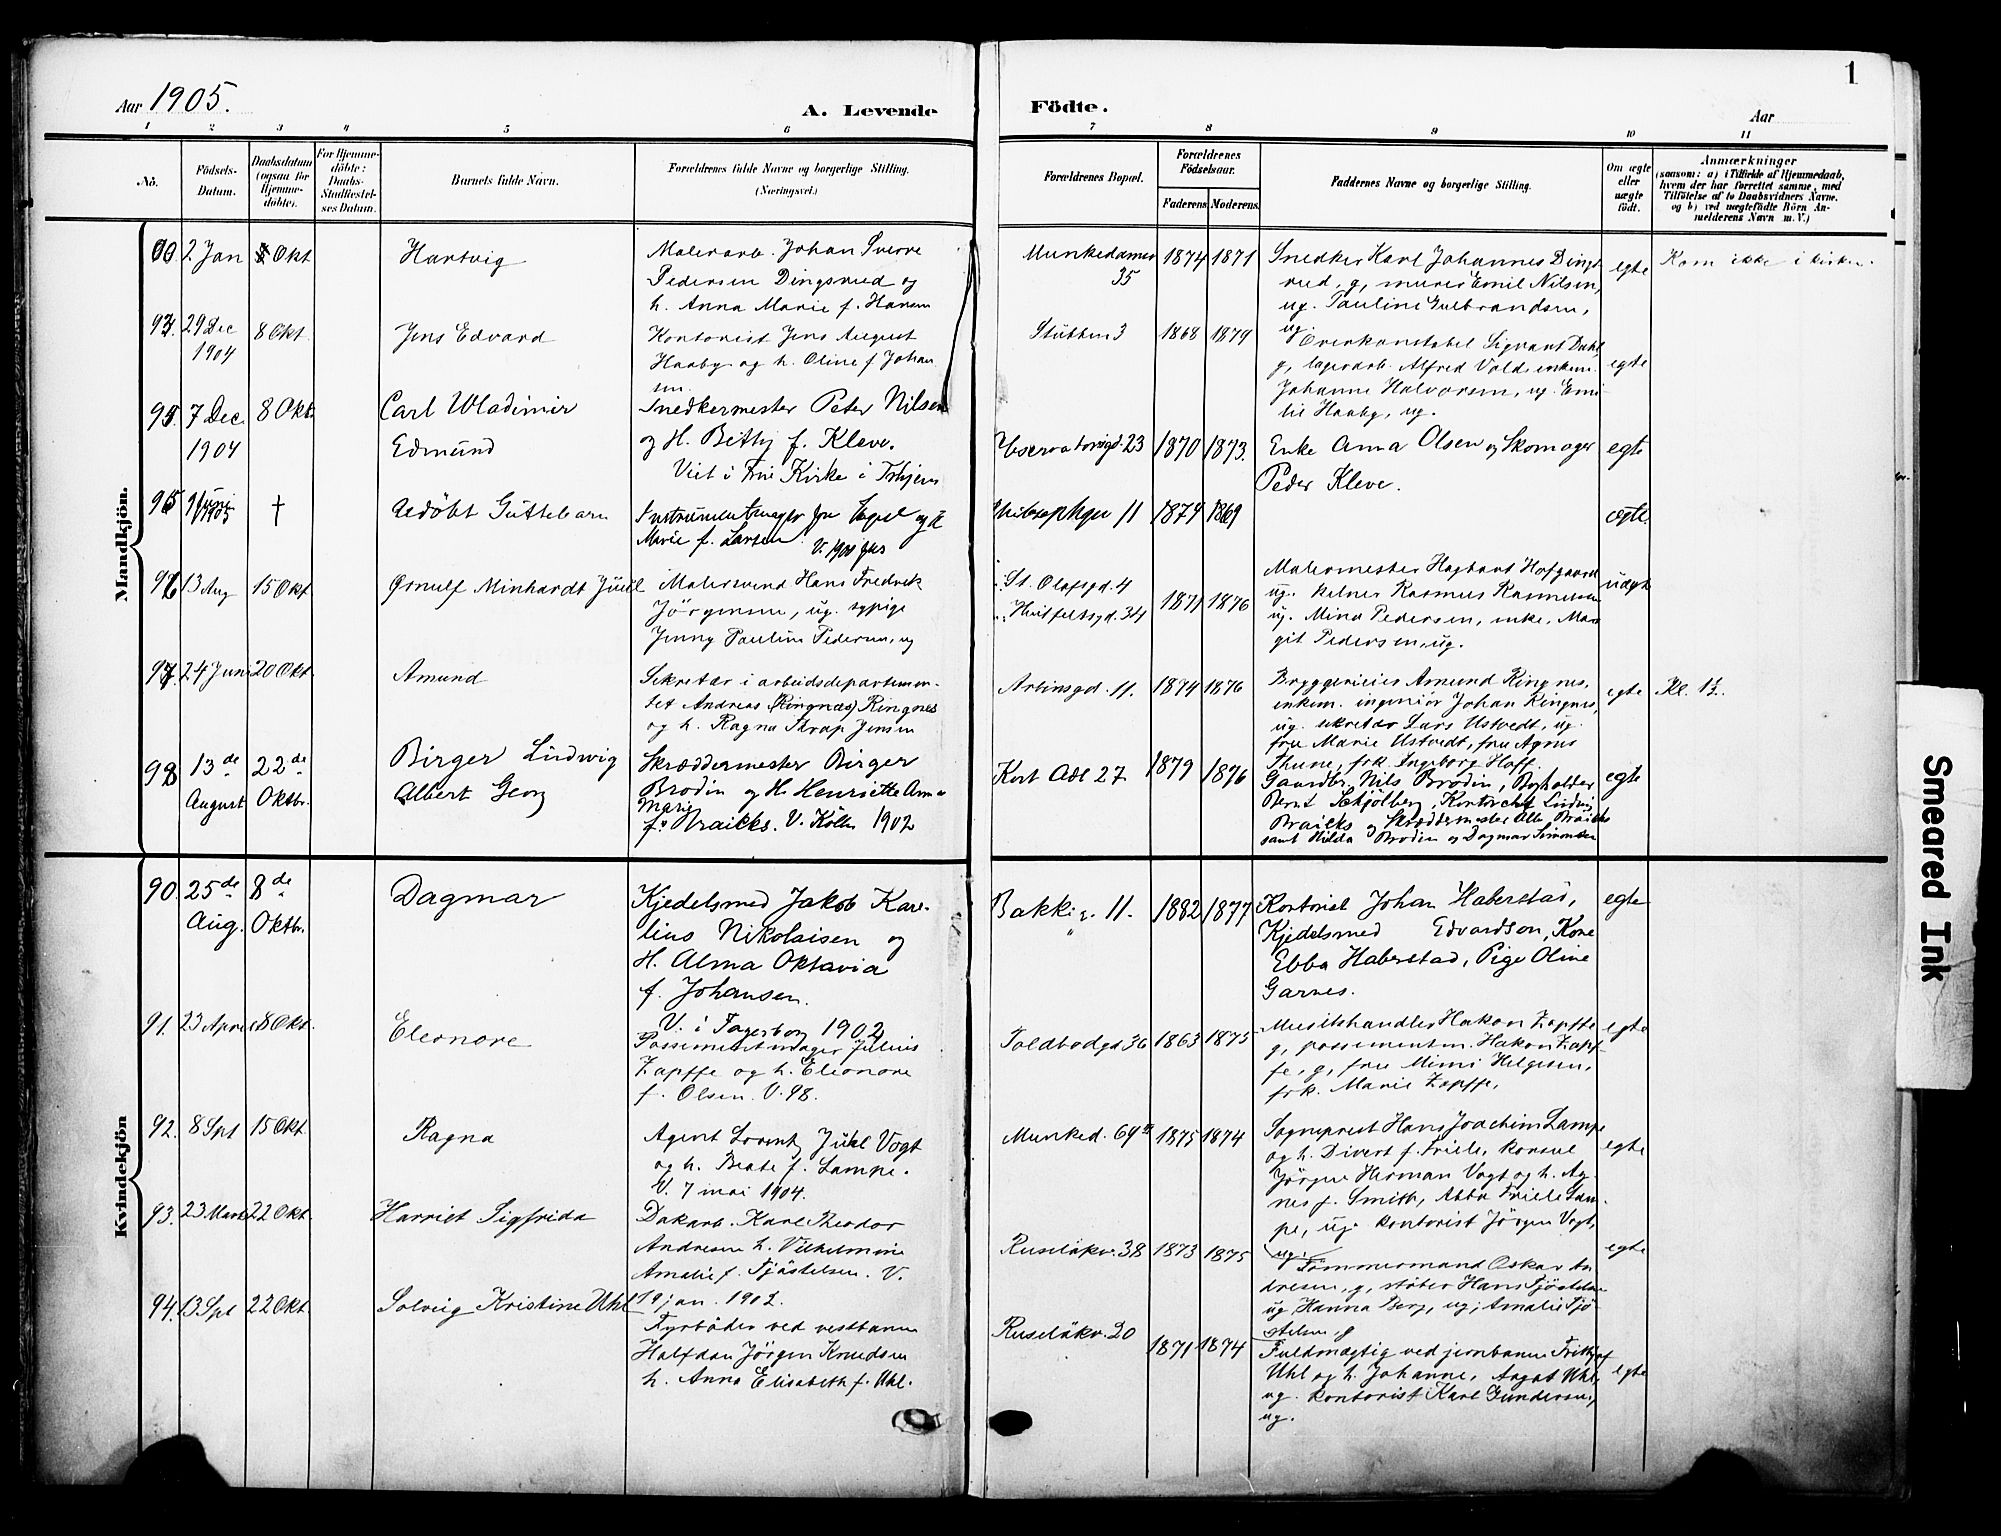 1
Aar 1905.
A. Levende
Födte.
Aar
1 2 3 4 5 6 7 8 9 10 11
No.
Födsels-
Datum.
Daabsdatum
(ogsaa for
Hjemme-
döbte).
For Hjemme-
döbte:
Daabs-
Stadfæstel-
ses Datum.
Barnets fulde Navn.
Forældrenes fulde Navne og borgerlige Stilling.
(Næringsvei.)
Forældrenes Bopæl.
Forældrenes
Födselsaar.
Faderens Moderens.
Faddernes Navne og borgerlige Stilling.
Om ægte
eller
uægte
födt.
Anmærkninger
(saasom: a) i Tilfælde af Hjemmedaab,
hvem der har forrettet samme, med
Tilföielse af to Daabsvidners Navne.
og b) ved uægtefödte Börn An-
melderens Navn m. V.)
Mandkjön.
2 Jan
Okt
Hartvig
Malerarb. Johan Sverre
Pedersen Dingsrud og
h. Anna Marie f. Hansen
Munkedamsv
35
1874 1871
Snedker Karl Johannes Dings
rud, g, murer Emil Nilsen,
ug. Pauline Gulbrandsen,
ug.
egte
Kom ikke i kirken.
29 Dec
1904
8 Okt.
Jens Edvard
Kontorist Jens August
Haaby og h. Oline f Johan
sen.
3
1868 1879
Overkonstabel Sigvart Dahl
g, lagerarb. Alfred Vold, enkem.
Johanne Halvorsen, ug. Emi
lie Haaby, ug.
egte
7 Dec
1904
8 Okt.
Carl Wladimir
Edmund
Snedkermester Peter Nilsen
og H. Betty f. Kleve.
Viet i Frie Kirke i
Observatoriegd. 23
1870 1873.
Enke Anna Olsen og Skomager
Peder Kleve.
egte
†
Uedöbt Guttebarn
Instrumentmager
Marie f. Larsen.
11
1879 1869
ægte.
13 Aug
15 Okt
Ornulf Minhardt Juul
Malersvend Hans Fredrik
Jörgensen, ug. sypige
Jenny Pauline Pedersen, ug
St. Olafsgd. 4
Huitfeltsgd. 34
1871 1876
Malermester Hagbart Hofgaard
ug. kelner Rasmus Rasmussen
ug. Mina Pedersen, enke, Mar
git Pedersen, ug.
uægte
97.
24 Juni
20 Okt.
Amund
Sekretær i arbeidsdepartemen-
tet Andreas (Ringnæs) Ringnes
og h. Ragna Jensen
Arbinsgd. 11.
1874 1876
Bryggerieier Amund Ringnes,
enkem. ingeniör Johan Ringnes,
ug. sekretær Lars Ustvedt, ug.
fru Marie Ustvedt, fru Agnes
Thune, frk. Ingeborg Hoff.
egte
Kl. 1½.
98
13de
August
22de
Oktbr.
Birger Ludwig
Albert Georg
Skræddermester Birger
Brodin og H. Henriette Anna
Marie
f. Braicks. V. Köln 1902
Kort Adl 27
1879 1876
Gaardbr. Nils Brodin, Bogholder
Bernt Schjölberg, Kontorchef Ludwig
Braicks og Skræddermester Alb. Braicks
samt Hilda Brodin og Dagmar Simonsen
egte
Kvindekjön
90.
25de
Aug.
8de
Oktbr.
Dagmar
Kjedelsmed Jakob Kar-
lius Nikolaisen og
H. Alma Oktavia
f. Johansen.
V. i Fagerborg 1902
Bakkig. 11.
1882 1877
Kontorist Johan Haberstad,
Kjedelsmed Edvardson, Kone
Ebba Haberstad, Pige Oline
Garnes.
egte
91.
23 April
8 Okt.
Eleonore
Possementmager Julius
Zapffe og h. Eleonore
f. Olsen. V. 98.
Toldbodgd 36
1863 1875
Musikhandler Hakon Zapffe
g, possementm. Hakon Zapf-
fe, g, fru Mimi Helgesen,
frk. Marie Zapffe,
egte
92.
8 Spt
15 Okt.
Ragna
Agent Lorentz Juhl Vogt
og h. Beate f. Lampe.
V. 7 mai 1904.
Munked. 69
1875 1874
Sogneprest Hans Joachim Lampe
og h. Divert f. Friele, konsul
Jörgen Herman Vogt og h. Ag
nes f. Smith, Abba Friele Lam-
pe, ug. kontorist Jörgen Vogt,
ug.
egte
93.
23 Mars
22 Okt.
Harriet Sigfrida
Dokarb. Karl Theodor
Andresen h. Vilhelmine
Amalie f. Sjöstelsen. V.
19 jan. 1902.
Ruselökv. 38
1873 1875
Tömmermand Oskar An
dresen, g, stöber Hans Sjöstelsen
ug Hanna Berg, ug, Amalie Sjö
stelsen, g
egte
94.
13 Spt
22 Okt.
Solveig Kristine Uhl
Fyrböder ved vestbanen
Halfdan Jörgen Knudsen
h. Anna Elisabeth f. Uhl.
Ruselökv. 20
1871 1874
Fuldmægtig ved jernbanen Frithjof
Uhl og h. Johanne, Aagot Uhl,
ug. kontorist Karl Gundersen,
ug.
egte
Smeared Ink